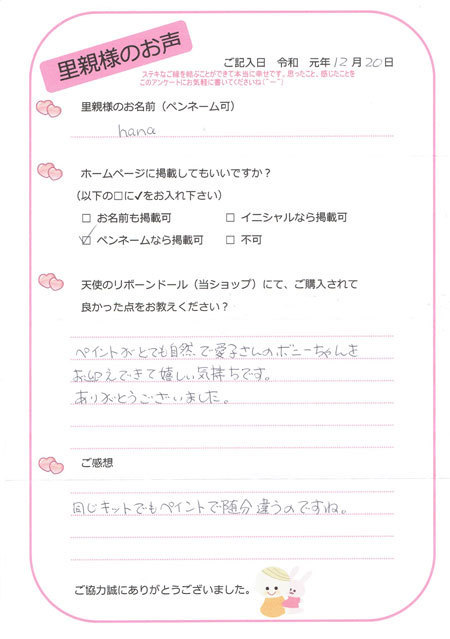 里親様のお声
ご記入日 令和 元年12月20日
ステキなご縁を結ぶことができて本当に幸せです。思ったこと、感じたことを
このアンケートにお気軽に書いてくださいね(^ー^)
里親様のお名前（ペンネーム可）
hana
ホームページに掲載してもいいですか？
（以下の□に✔をお入れ下さい）
□ お名前も掲載可 □ イニシャルなら掲載可
☑ ペンネームなら掲載可 □ 不可
天使のリボーンドール（当ショップ）にて、ご購入されて
良かった点をお教えください？
ペイントがとても自然で愛子さんのボニーちゃんを
お迎えできて嬉しい気持ちです。
ありがとうございました。
ご感想
同じキットでもペイントで随分違うのですね。
ご協力誠にありがとうございました。